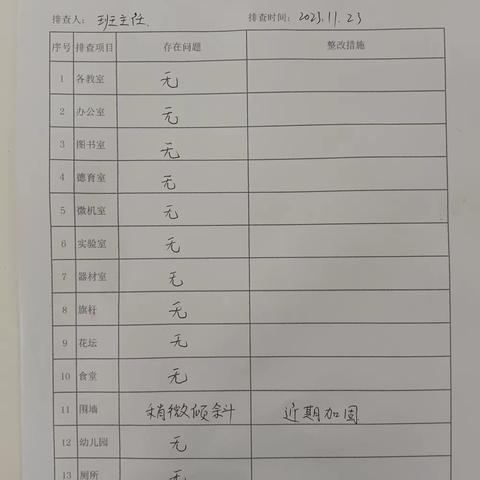 排查人：班主任 排查时间：2023.11.23
序号 排查项目 存在问题 整改措施
1 各教室 无
2 办公室 无
3 图书室 无
4 德育室 无
5 微机室 无
6 实验室 无
7 器材室 无
8 旗杆 无
9 花坛 无
10 食堂 无
11 围墙 稍微倾斜 近期加固
12 幼儿园 无
13 厕所 无